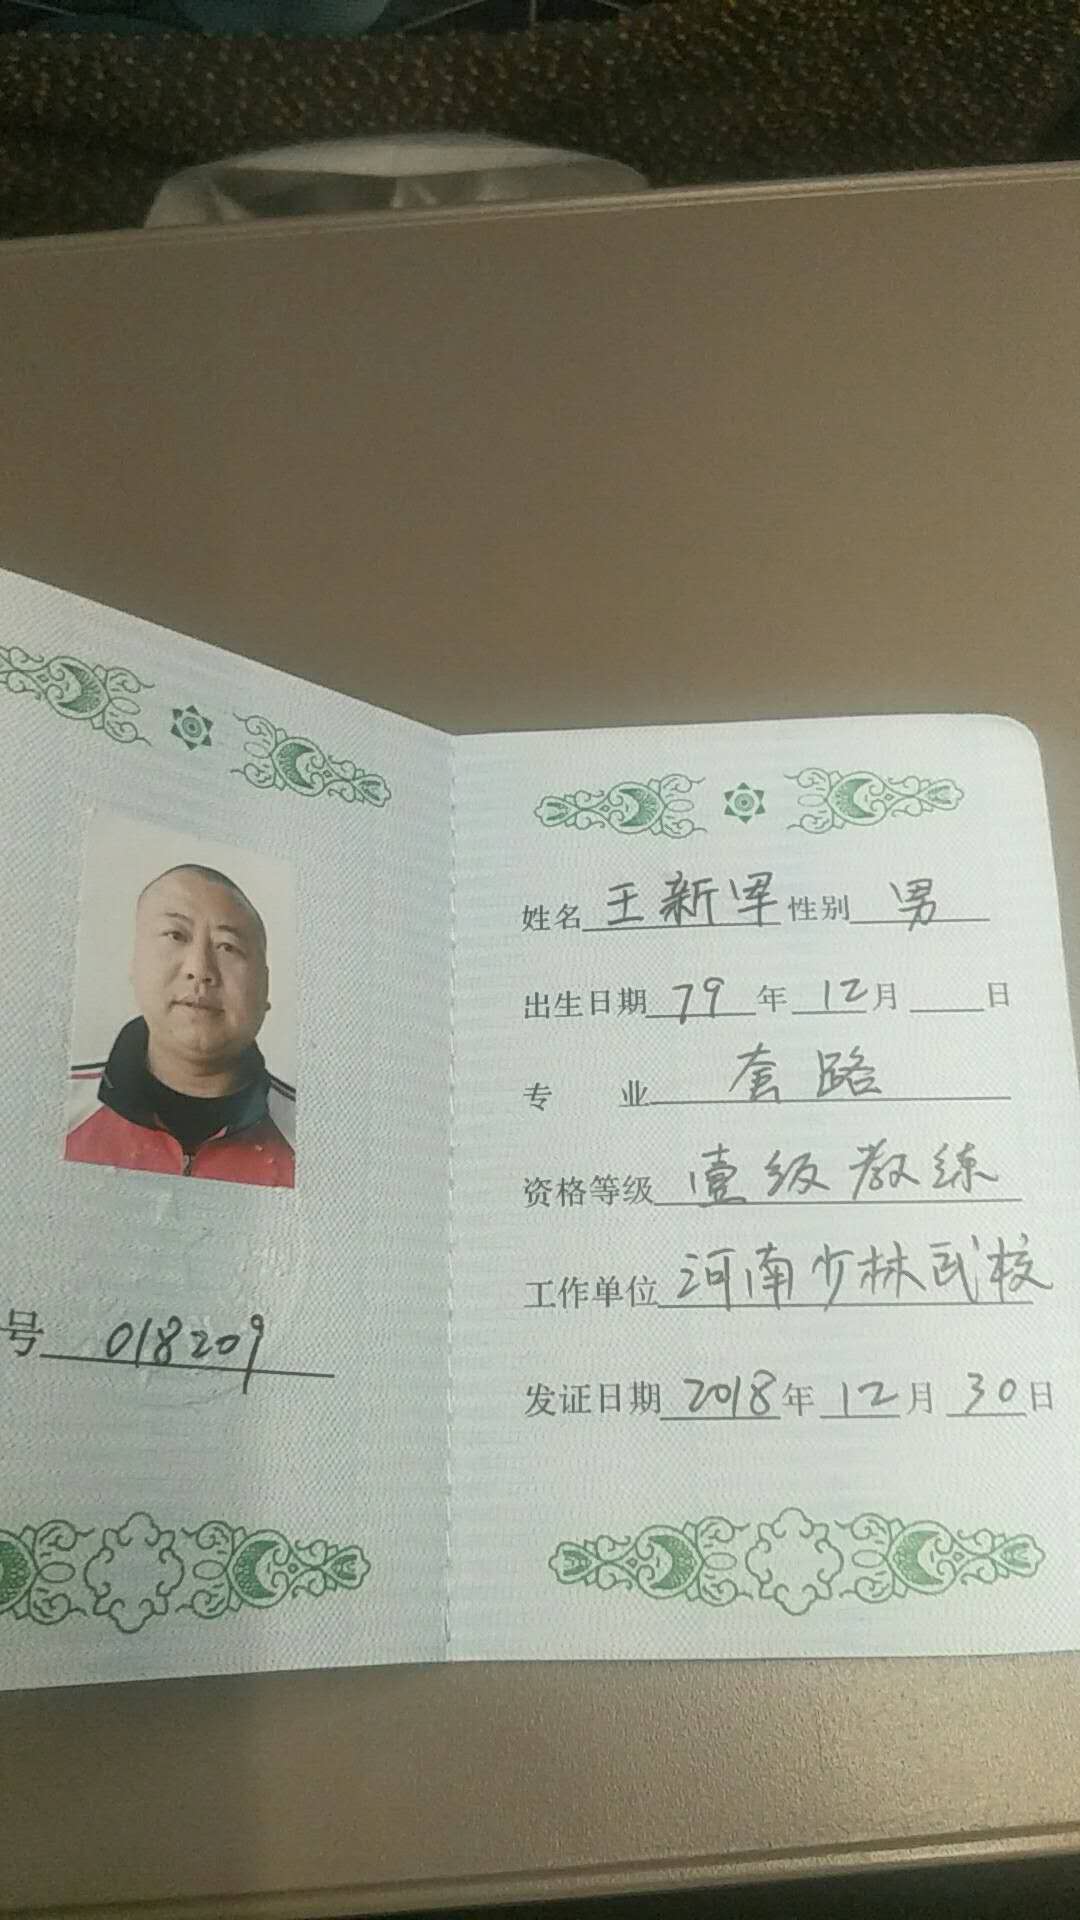 号 018209
姓名 王新军 性别 男
出生日期 79 年 12 月 日
专 业 套路
资格等级 壹级教练
工作单位 河南少林武校
发证日期 2018 年 12 月 30 日